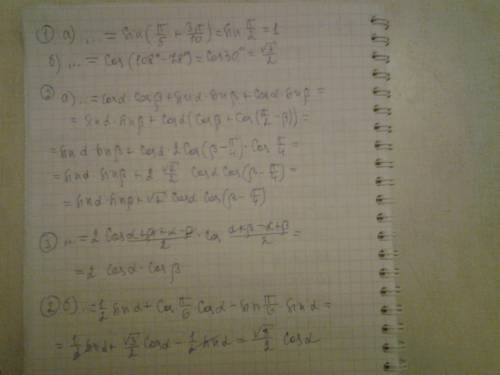 ① а) ... = sin(π/5 + 3π/10) = sin π/2 = 1
б) ... = cos(108° - 78°) = cos 30° = √3/2
② а) ... = cosα·cosβ + sinα·sinβ + cosα·sinβ =
= sinα·sinβ + cosα(cosβ + cos(π/2 - β)) =
= sinα·sinβ + cosα·2cos(β - π/4)·cos π/4 =
= sinα·sinβ + 2 √2/2 cosα cos(β - π/4) =
= sinα·sinβ + √2 cosα cos(β - π/4)
③ ... = 2 cos (α+β+α-β)/2 · cos (α+β-α+β)/2 =
= 2 cosα·cosβ
② б) ... = 1/2 sinα + cos π/6 cosα - sin π/6 sinα =
= 1/2 sinα + √3/2 cosα - 1/2 sinα = √3/2 cosα